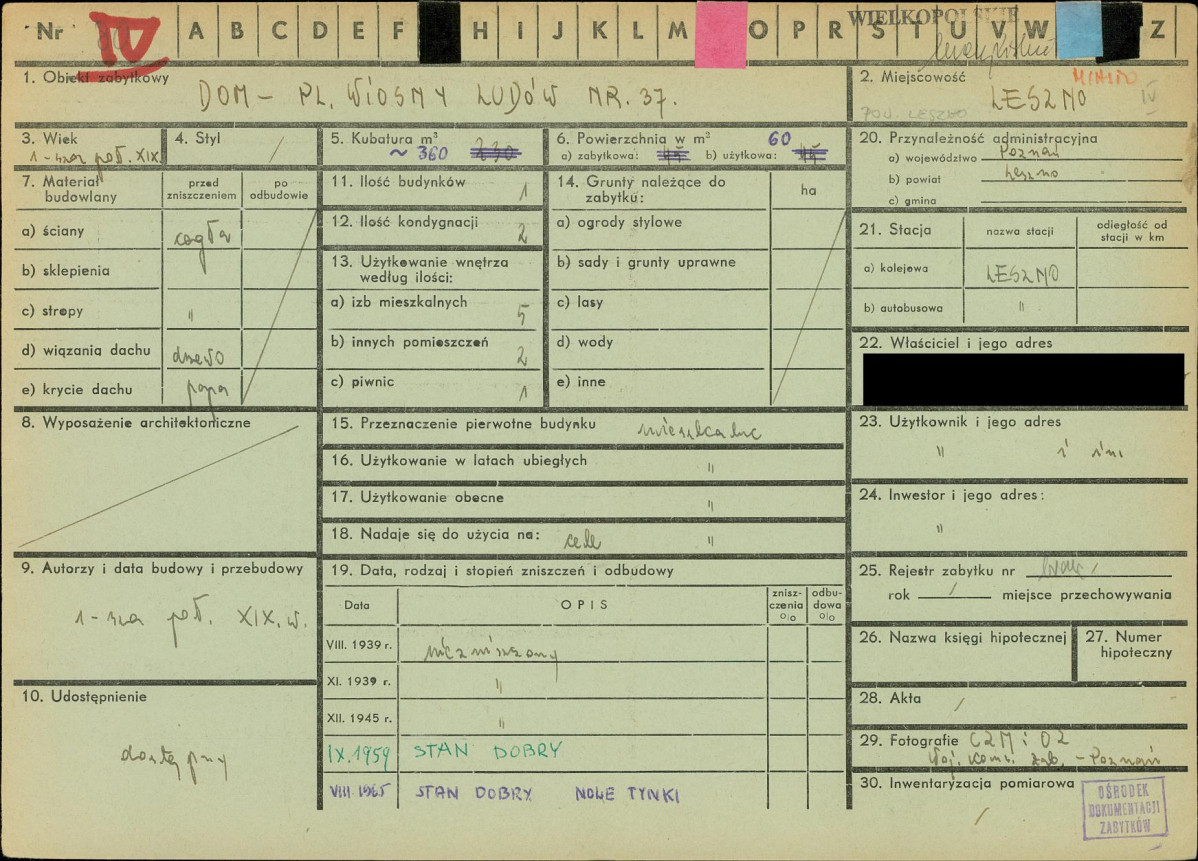 Nr IV A B C D E F H I J K L M O P R S T U V W Z
WIELKOPOLSKIE
1. Obiekt zabytkowy
DOM – PL. WIOSNY LUDÓW NR. 37.
2. Miejscowość
LESZNO IV
POW. LESZNO
3. Wiek
1-sza poł. XIX.
4. Styl /
5. Kubatura m³
~ 360 230
6. Powierzchnia w m² 60
a) zabytkowa: b) użytkowa:
20. Przynależność administracyjna
a) województwo Poznań
b) powiat Leszno
c) gmina
7. Materiał budowlany
przed zniszczeniem
po odbudowie
a) ściany cegła
b) sklepienia
c) stropy "
d) wiązania dachu drzewo
e) krycie dachu papa
11. Ilość budynków 1
12. Ilość kondygnacji 2
13. Użytkowanie wnętrza
według ilości:
a) izb mieszkalnych 5
b) innych pomieszczeń 2
c) piwnic 1
14. Grunty należące do
zabytku:
ha
a) ogrody stylowe
b) sady i grunty uprawne
c) lasy
d) wody
e) inne
21. Stacja
nazwa stacji
odległość od
stacji w km
a) kolejowa LESZNO
b) autobusowa "
22. Właściciel i jego adres
8. Wyposażenie architektoniczne
15. Przeznaczenie pierwotne budynku mieszkalne
16. Użytkowanie w latach ubiegłych "
17. Użytkowanie obecne "
18. Nadaje się do użycia na: cele "
23. Użytkownik i jego adres
" i inni
24. Inwestor i jego adres:
"
9. Autorzy i data budowy i przebudowy
1-sza poł. XIX. w.
19. Data, rodzaj i stopień zniszczeń i odbudowy
Data
OPIS
znisz-
czenia
%
odbu-
dowa
%
VIII. 1939 r. niezniszczony
XI. 1939 r. "
XII. 1945 r. "
IX. 1959 STAN DOBRY
VIII. 1965 STAN DOBRY NOWE TYNKI
10. Udostępnienie
dostępny
25. Rejestr zabytku nr brak /
rok / miejsce przechowywania
26. Nazwa księgi hipotecznej
27. Numer
hipoteczny
28. Akta /
29. Fotografie CZM i OZ
Woj. Kons. Zab. – Poznań
30. Inwentaryzacja pomiarowa
/
OŚRODEK
DOKUMENTACJI
ZABYTKÓW